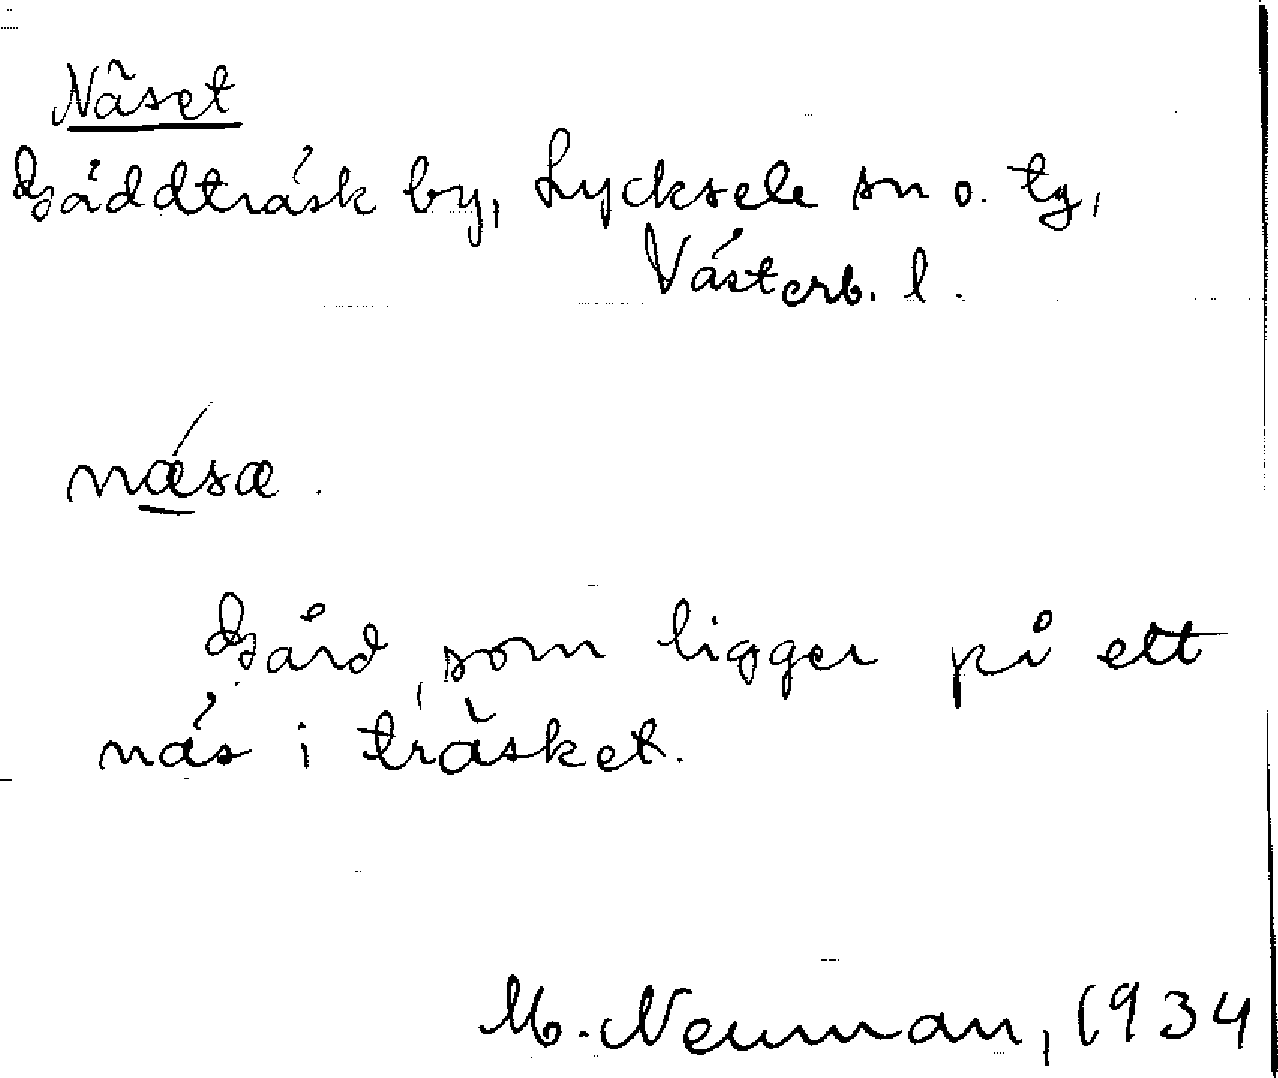 Näset
Gäddträsk by, Lycksele sn o. tg,
Västerb. l.
nǽ̲sæ.
Gård, som ligger på ett
näs i träsket.
M. Neuman, 1934